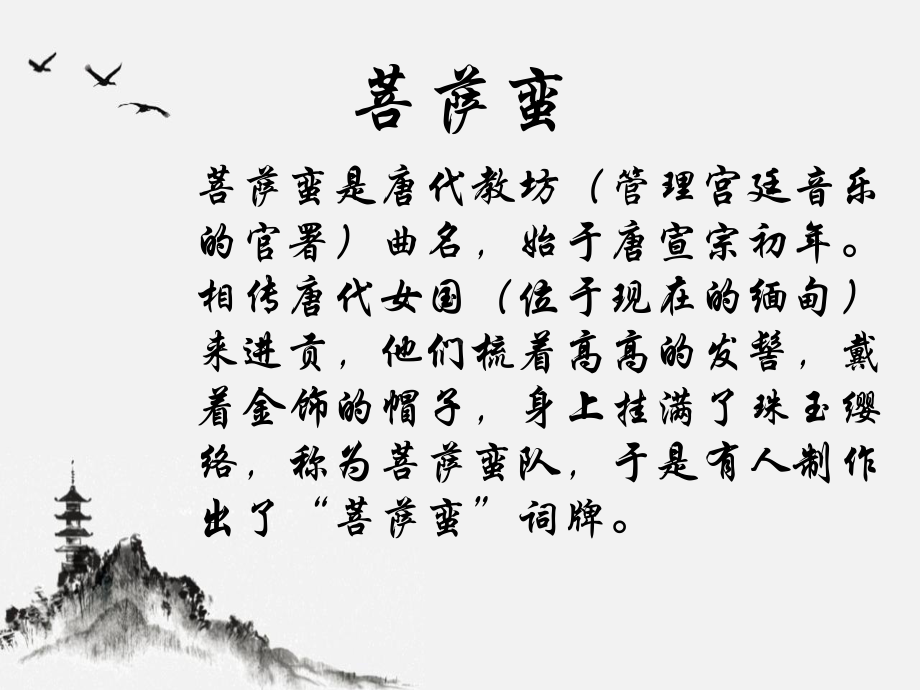 菩萨蛮
菩萨蛮是唐代教坊（管理宫廷音乐
的官署）曲名，始于唐宣宗初年。
相传唐代女国（位于现在的缅甸）
来进贡，他们梳着高高的发髻，戴
着金饰的帽子，身上挂满了珠玉缨
络，称为菩萨蛮队，于是有人制作
出了“菩萨蛮”词牌。